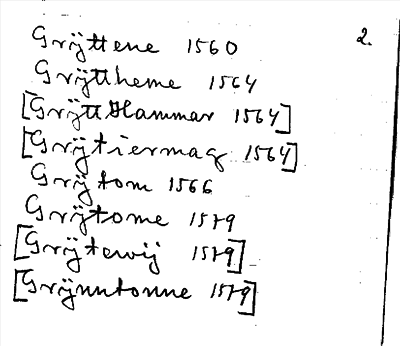 Grÿttene 1560 2.
Grÿttheme 1564
[Grÿtt Hammar 1564]
[Grÿtiermaq 1564]
Grÿtom 1566
Grÿtome 1579
[Grÿtewij 1579]
[Grÿnntonne 1579]